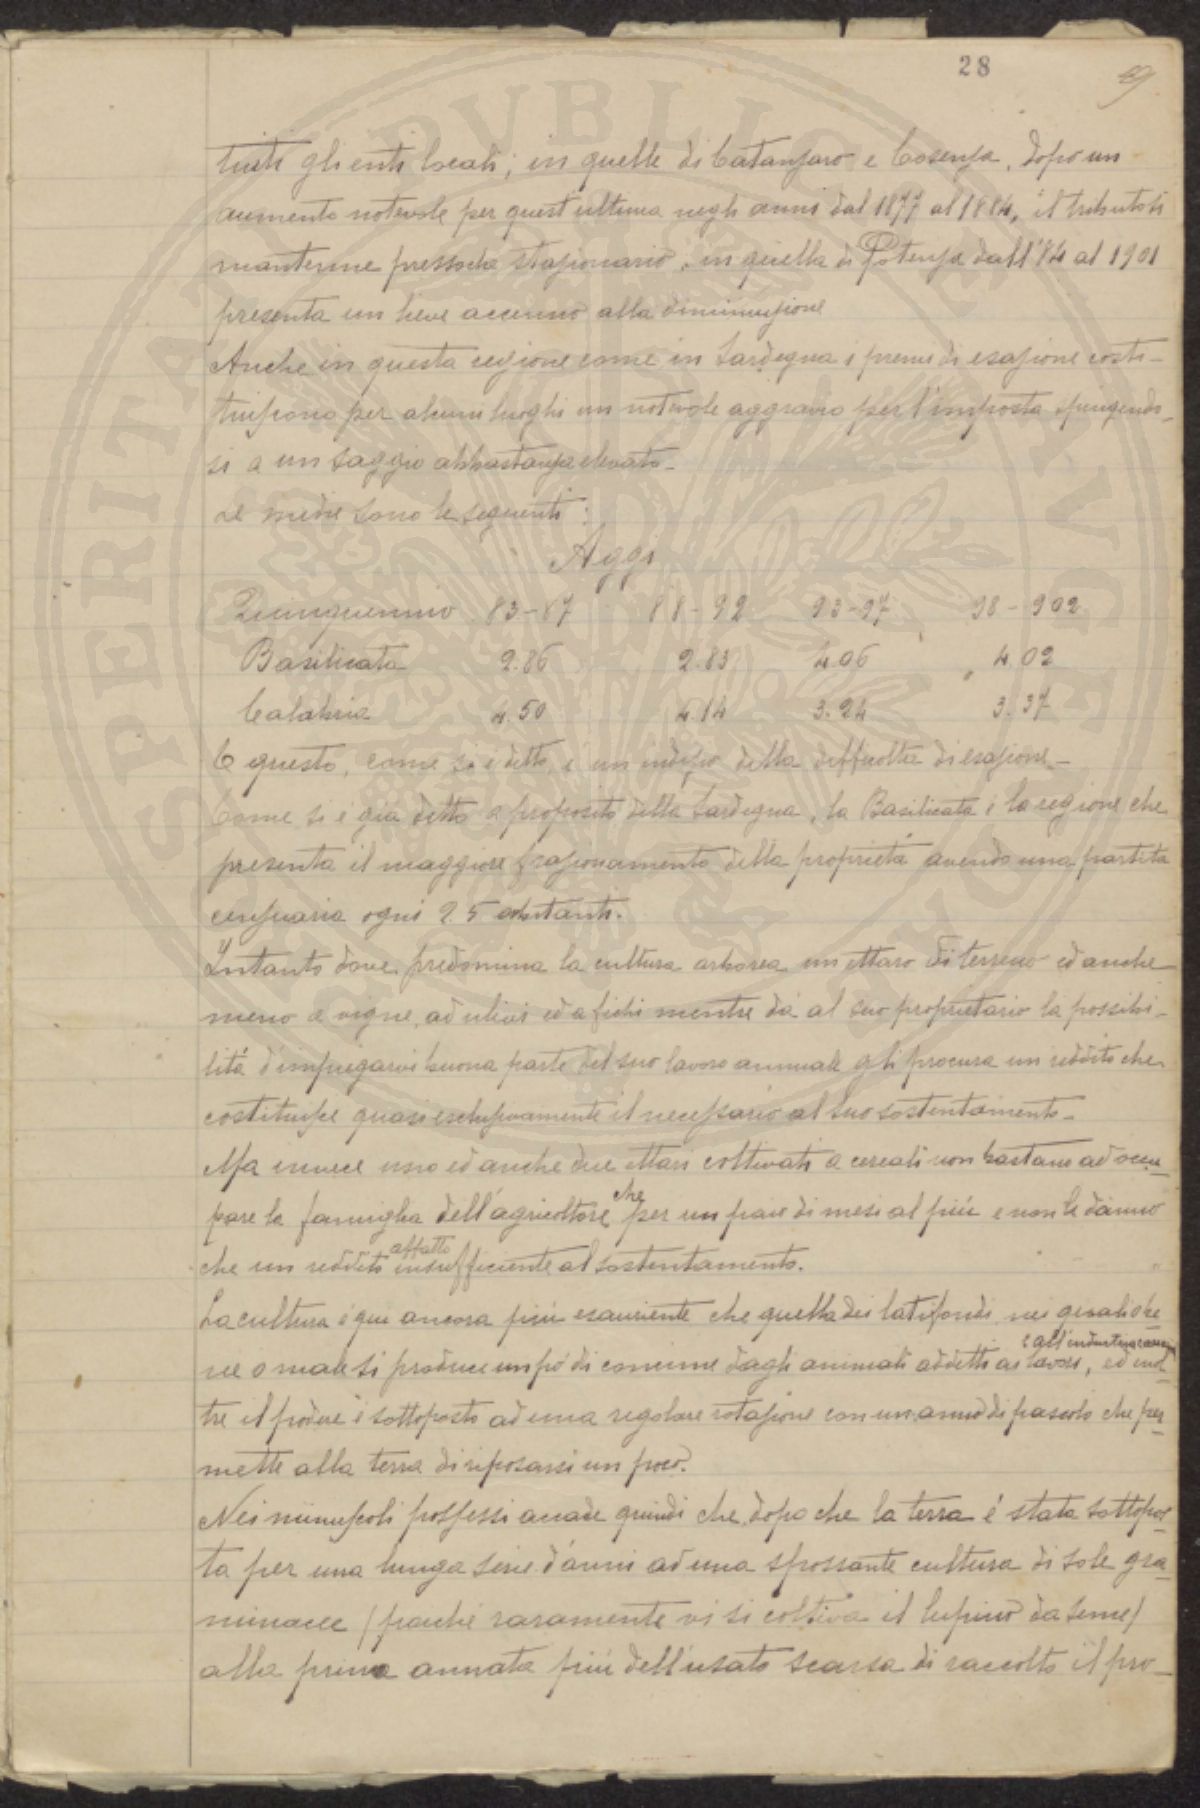 28
29
tutti gli enti locali; in quelle di Catanzaro e Cosenza, dopo un
aumento notevole per quest'ultima negli anni dal 1877 al 1884, il tributo si
mantenne pressochè stazionario, in quella di Potenza dall'84 al 1901
presenta un lieve accenno alla diminuzione
Anche in questa regione come in Sardegna i premi di esazione costi-
tuiscono per alcuni luoghi un notevole aggravio per l'imposta spingendo-
si a un saggio abbastanza elevato-
Le medie sono le seguenti:
Aggi
Quinquennio 83-87 88-92 93-97 98-902
Basilicata 2.86 2.83 4.06 4.02
Calabria 4.50 4.14 3.24 3.37
E questo, come si è detto, è un indizio della difficoltà di esazione-
Come si è già detto a proposito della Sardegna, la Basilicata è la regione che
presenta il maggiore frazionamento della proprietà avendo una partita
censuaria ogni 2.5 abitanti.
Intanto dove predomina la cultura arborea un ettaro di terreno ed anche
meno a vigne, ad ulivi ed a fichi mentre dà al suo proprietario la possibi-
lità d'impiegarvi buona parte del suo lavoro annuale gli procura un reddito che
costituisce quasi esclusivamente il necessario al suo sostentamento-
Ma invece uno ed anche due ettari coltivati a cereali non bastano ad occu-
pare la famiglia dell'agricoltore che per un paio di mesi al più e non le danno
che un reddito affatto insufficiente al sostentamento.
La cultura è qui ancora più esauriente che quella dei latifondi nei quali be-
ne o male si produce un pò di concime dagli animali addetti ai lavori, e all'industria ed inol-
tre il podere è sottoposto ad una regolare rotazione con un anno di pascolo che per-
mette alla terra di riposarsi un poco.
Nei minuscoli possessi accade quindi che dopo che la terra è stata sottopos-
ta per una lunga serie d'anni ad una spossante cultura di sole gra-
minacee (poichè raramente vi si coltiva il lupino da seme)
alla prima annata più dell'usato scarsa di raccolto il pro-
SPERITAT PVBLICE AVGE